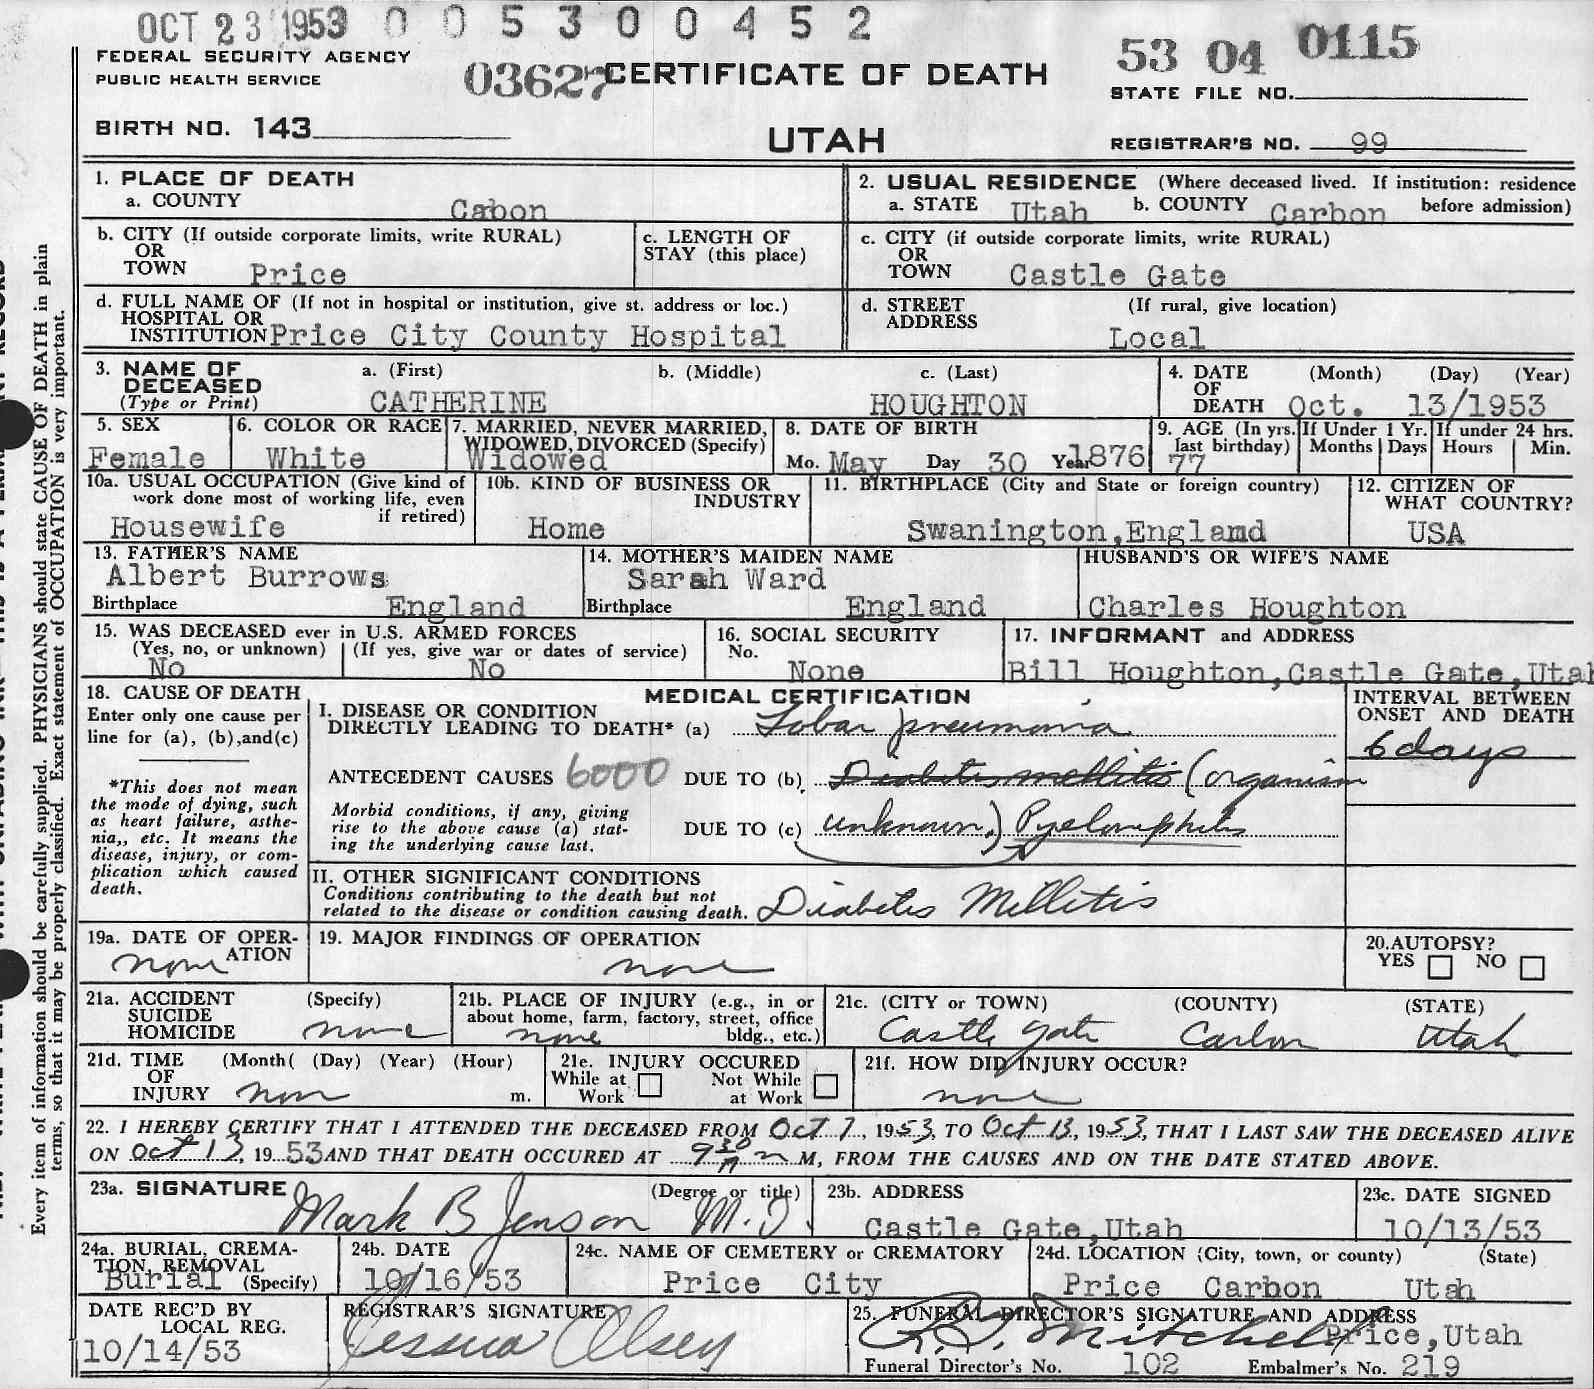 OCT 23 1953 0 0 5 3 0 0 4 5 2
FEDERAL SECURITY AGENCY
PUBLIC HEALTH SERVICE
03627 CERTIFICATE OF DEATH
53 04 0115
STATE FILE NO.
BIRTH NO. 143
UTAH
REGISTRAR'S NO. 99
1. PLACE OF DEATH
a. COUNTY Cabon
2. USUAL RESIDENCE (Where deceased lived. If institution: residence before admission)
a. STATE Utah b. COUNTY Carbon
b. CITY (If outside corporate limits, write RURAL)
OR
TOWN Price
c. LENGTH OF
STAY (this place)
c. CITY (if outside corporate limits, write RURAL)
OR
TOWN Castle Gate
d. FULL NAME OF (If not in hospital or institution, give st. address or loc.)
HOSPITAL OR
INSTITUTION Price City County Hospital
d. STREET (If rural, give location)
ADDRESS
Local
3. NAME OF
DECEASED
(Type or Print)
a. (First) b. (Middle) c. (Last)
CATHERINE HOUGHTON
4. DATE (Month) (Day) (Year)
OF
DEATH Oct. 13/1953
5. SEX
Female
6. COLOR OR RACE
White
7. MARRIED, NEVER MARRIED,
WIDOWED, DIVORCED (Specify)
Widowed
8. DATE OF BIRTH
Mo. May Day 30 Year 1876
9. AGE (In yrs.
last birthday)
77
If Under 1 Yr.
Months Days
If under 24 hrs.
Hours Min.
10a. USUAL OCCUPATION (Give kind of
work done most of working life, even
if retired)
Housewife
10b. KIND OF BUSINESS OR
INDUSTRY
Home
11. BIRTHPLACE (City and State or foreign country)
Swanington,England
12. CITIZEN OF
WHAT COUNTRY?
USA
13. FATHER'S NAME
Albert Burrows
Birthplace England
14. MOTHER'S MAIDEN NAME
Sarah Ward
Birthplace England
HUSBAND'S OR WIFE'S NAME
Charles Houghton
15. WAS DECEASED ever in U.S. ARMED FORCES
(Yes, no, or unknown) (If yes, give war or dates of service)
No No
16. SOCIAL SECURITY
No.
None
17. INFORMANT and ADDRESS
Bill Houghton,Castle Gate,Utah
18. CAUSE OF DEATH
Enter only one cause per
line for (a), (b),and(c)
*This does not mean
the mode of dying, such
as heart failure, asthe-
nia,, etc. It means the
disease, injury, or com-
plication which caused
death.
MEDICAL CERTIFICATION
I. DISEASE OR CONDITION
DIRECTLY LEADING TO DEATH* (a) Lobar pneumonia
ANTECEDENT CAUSES 6000 DUE TO (b) Diabetes mellitis (organism
Morbid conditions, if any, giving
rise to the above cause (a) stat-
ing the underlying cause last.
DUE TO (c) unknown.) Pyelonephitis
INTERVAL BETWEEN
ONSET AND DEATH
6 days
II. OTHER SIGNIFICANT CONDITIONS
Conditions contributing to the death but not
related to the disease or condition causing death. Diabetes Millitis
19a. DATE OF OPER-
ATION
none
19. MAJOR FINDINGS OF OPERATION
none
20.AUTOPSY?
YES NO
21a. ACCIDENT (Specify)
SUICIDE
HOMICIDE none
21b. PLACE OF INJURY (e.g., in or
about home, farm, factory, street, office
bldg., etc.)
none
21c. (CITY or TOWN) (COUNTY) (STATE)
Castle Gate Carbon Utah
21d. TIME (Month( (Day) (Year) (Hour)
OF
INJURY non m.
21e. INJURY OCCURED
While at Work Not While at Work
21f. HOW DID INJURY OCCUR?
none
22. I HEREBY CERTIFY THAT I ATTENDED THE DECEASED FROM Oct 7, 1953, TO Oct 13, 1953, THAT I LAST SAW THE DECEASED ALIVE
ON Oct 13, 1953 AND THAT DEATH OCCURED AT 9 30 A M, FROM THE CAUSES AND ON THE DATE STATED ABOVE.
23a. SIGNATURE (Degree or title)
Mark B Jenson M.D.
23b. ADDRESS
Castle Gate,Utah
23c. DATE SIGNED
10/13/53
24a. BURIAL, CREMA-
TION, REMOVAL
Burial (Specify)
24b. DATE
10/16/53
24c. NAME OF CEMETERY or CREMATORY
Price City
24d. LOCATION (City, town, or county) (State)
Price Carbon Utah
DATE REC'D BY
LOCAL REG.
10/14/53
REGISTRAR'S SIGNATURE
Olsen
25. FUNERAL DIRECTOR'S SIGNATURE AND ADDRESS
Mitchell Price,Utah
Funeral Director's No. 102 Embalmer's No. 219
Every item of information should be carefully supplied. PHYSICIANS should state CAUSE OF DEATH in plain
terms, so that it may be properly classified. Exact statement of OCCUPATION is very important.